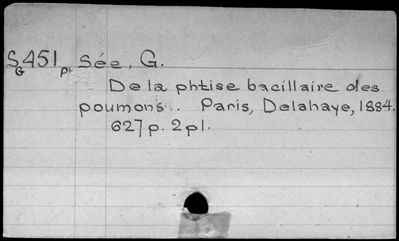 SG451p Sée, G.
De la phtise bacillaire des
poumons.. Paris, Delahaye, 1884.
627 p. 2 pl.